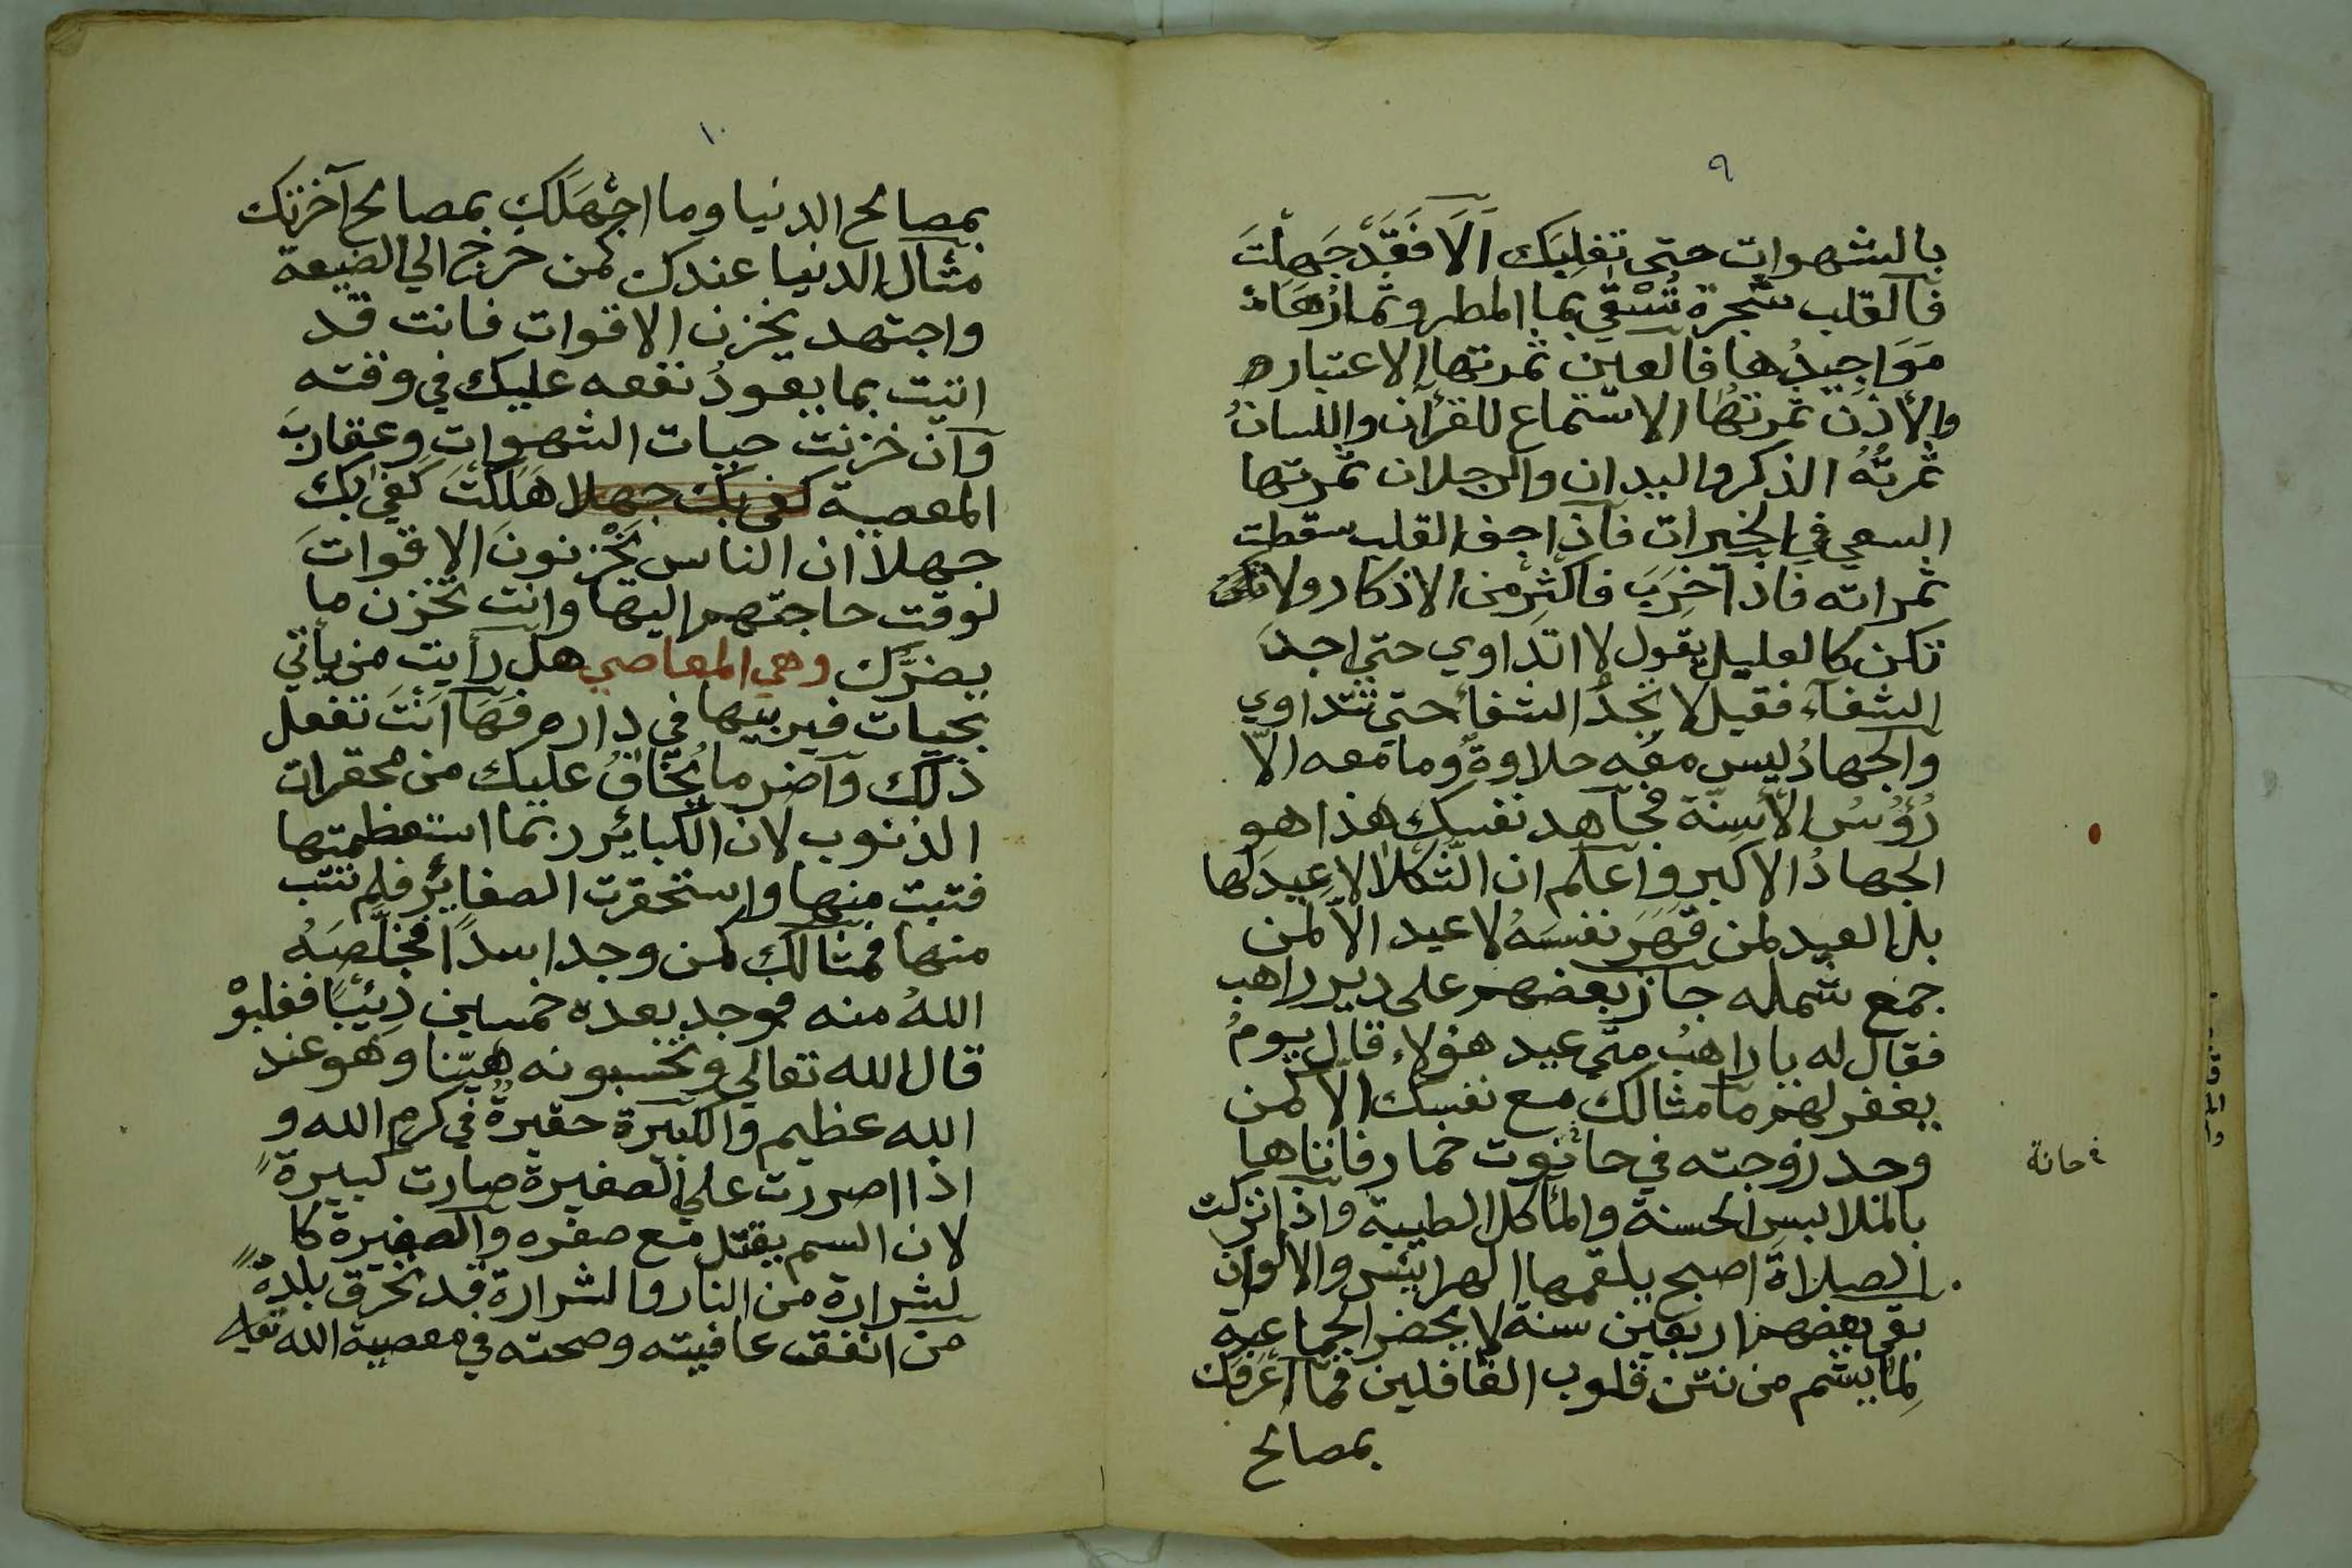 ٩
بالشهوات حتى تغلبك الَا فَقَدْ جَهِلْتَ
فالقلب شجرة تُسْقَي بماالمطر وثمارُهَا
مَوَاجِيدُها فالعين ثمرتها الاعتباره
والأذن ثمرتها الاستماع للقرآن واللسانُ
ثمرتُهُ الذكر واليدان والرجلان ثمرتها
السعي في الخيرات فاذا جف القلب سقطت
ثمراته فاذا خَرِبَ فاكثِرْ من الاذكار ولا تكن
تكن كالعليل يقول لا اتداوي حتي اجدَ
الشفآء فقيل لا تجدُ الشفأ حتي تتداوي
والجهادُ ليس معه حلاوةٌ وما معه الّا
رُؤُسُ الأسِنّة فجاهد نفسك هذا هو
الجهادُ الاكبر واعلم ان الثّكلا لا عِيدَ لها
بل العيد لمن قَهَرَ نفسَهُ لا عيد الّا لمن
جمع شمله جاز بعضهم على دير راهب
فقال له يا راهبُ متي عيد هؤلاء قال يومُ
يغفر لهم ما مثالك مع نفسك الّا كمن
وجد زوجته في حانوت خمار فاتاها
؛ حانة
بالملابس الحسنة والمأكل الطيبة واذا تركت
الصلاةَ اصبح يلقمها الهرائس والالوان
بقي بعضهم اربعين سنة لا يحضر الجماعة
لِمَا يشم من نتن قلوب الغافلين فما اعرفك
بمصالح
١٠
بمصالح الدنيا وما اجْهَلَكَ بمصالح آخرتك
مثال الدنيا عندك كمن خرج الي الضيعة
واجتهد يخزن الاقوات فانت قد
اتيت بما يعودُ نفعه عليك في وقته
وان خزنت حيات الشهوات وعقاربَ
المعصية كفى بك جهلا هَلَكْتَ كفي بك
جهلا ان الناس يَخْزنونَ الاقواتَ
لوقت حاجتهم اليها وانت تخزن ما
يضرّك وهي المعاصي هل رأيت من يأتي
بحيات فيربيها في داره فَهَا اَنْتَ تفعل
ذلك واضر ما يُخَافُ عليك من محقرات
الذنوب لان الكبائر ربما استعظمتها
فتبت منها واستحقرت الصغائر فلم تتب
منها فمثالك كمن وجد اسدًا فخَلَّصَهُ
اللهُ منه فوجد بعده خمسين ذِئبًا فغلبوْ
قال الله تعالي وتحسبونه هيّنا وهو عند
الله عظيم والكبيرة حقيرةٌ في كرم الله و
اذا اصررت علي الصغيرة صارت كبيرةً
لان السم يقتل مع صغره والصغيرة كا
لشرارة من النار والشرارة قد تحرق بلدةً
من انفق عافيته وصحته في معصية الله تعالي